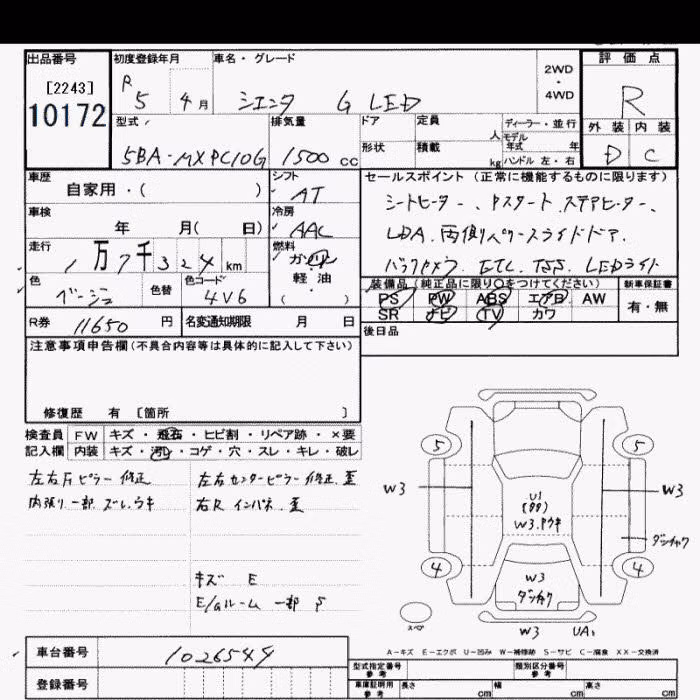 出品番号 初度登録年月 車名・グレード 評価点
[2243] R 5 4月 シエンタ G LED 2WD・4WD R
10172 型式 排気量 ドア 定員 人 ディーラー・並行 外装 内装
5BA-MXPC10G 1500 cc 形状 積載 kg モデル年式 年 ハンドル 左・右 D C
車歴 シフト セールスポイント(正常に機能するものに限ります)
自家用・( ) AT シートヒーター、Pスタート、ステアヒーター、
車検 冷房
年 月( 日) AAC LDA、両側パワースライドドア、
走行 燃料
1万7千324km ガソリン バックカメラ、ETC、TSS、LEDライト
色 色替 色コード 軽油 装備品(純正品に限り○をつけてください) 新車保証書
ベージュ 4V6 ( ) PS PW ABS エアB AW 有・無
R券 11650円 名変通知期限 月 日 SR ナビ TV カワ
注意事項申告欄(不具合内容等は具体的に記入して下さい) 後日品
修復歴 有 [箇所 ]
検査員 FW キズ・飛石・ヒビ割・リペア跡・×要
記入欄 内装 キズ・汚れ・コゲ・穴・スレ・キレ・破レ
5 5
左右Fピラー 修正 左右センターピラー 修正、歪
W3 W3
内張り一部 ズレ、ウキ 右R インパネ 歪
U1
W3、Pウキ
ダンチャク
4 4
キズ E W3
E/Gルーム 一部 S ダンチャク
スペア
W3 UA1
A-キズ E-エクボ U-凹み W-補修跡 S-サビ C-腐食 XX-交換済
車台番号 1026549 型式指定番号 参考 類別区分番号 参考
登録番号 車庫証明用 参考 長さ cm 幅 cm 高さ cm